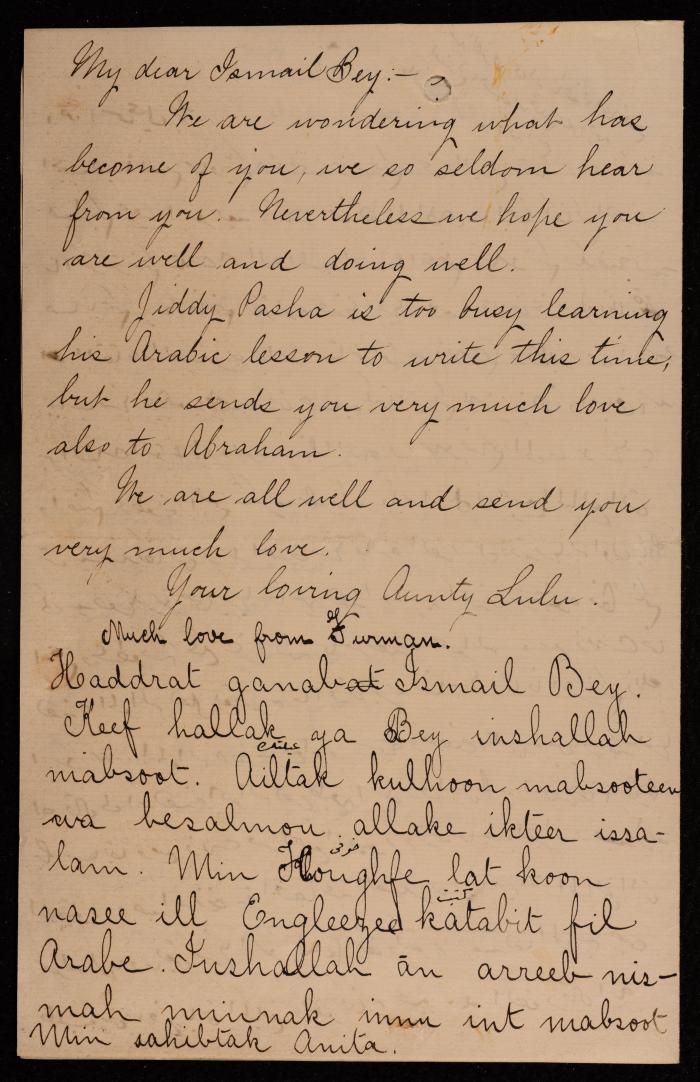 My dear Ismail Bey:—
We are wondering what has
become of you, we so seldom hear
from you. Nevertheless we hope you
are well and doing well.
Jiddy Pasha is too busy learning
his Arabic lesson to write this time,
but he sends you very much love
also to Abraham.
We are all well and send you
very much love.
Your loving Aunty Lulu.
Much love from Furman.
Haddrat ganabat Ismail Bey.
Keef hallak ya Bey inshallah
عيلتك
mabsoot. Ailtak kulhoon mabsooteen
wa besalmou allake ikteer issa-
خوفي
lam. Min Khoughfe lat koon
كتبت
nasee ill Engleezee katabit fil
Arabe. Inshallah ān arreeb nis-
mah minnak innu int mabsoot
Min sahibtak Anita.